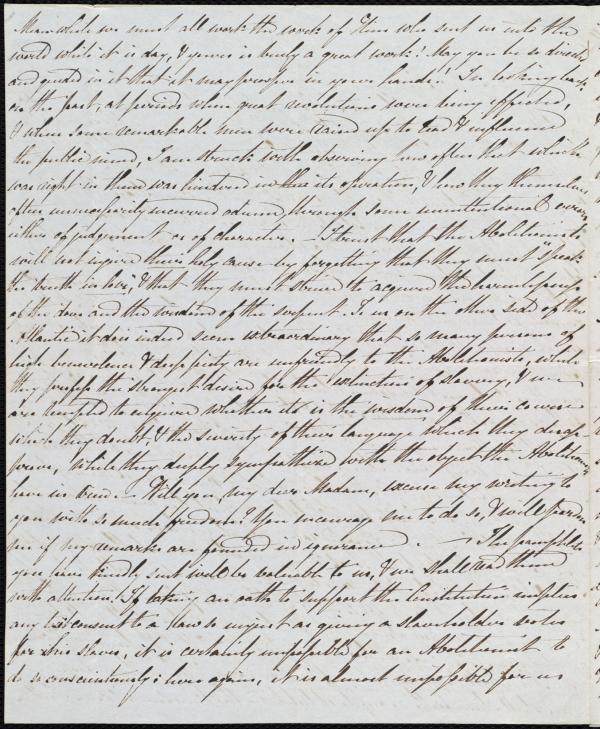 Man which we must all work the work of Him who sent us into the
world while it is day, & yours is truly a great work! May you be so directed
and guided in it that it may prosper in your hands! In looking back
on the past, at periods when great revolutions were being effected,
& when some remarkable men were raised up to lead & influence
the public mind, I am struck with observing how often that which
was right in them was hindered in its operation, & how they themselves
often unnecessarily incurred odium through some unintentional error
either of judgement or of character. — I trust that the Abolitionists
will not injure their holy cause by forgetting that they must "speak
the truth in love", & that they must strive to acquire the harmlessness
of the dove and the wisdom of the serpent. To us on the other side of the
Atlantic it does indeed seem extraordinary that so many persons of
high benevolence & deep piety are unfriendly to the Abolitionists, while
they profess the strongest desire for the extinction of slavery, & we
are tempted to enquire whether it is the wisdom of their course
which they doubt, & the severity of their language which they disap-
prove, while they deeply sympathize with the object the Abolitionists
have in view. — Will you, my dear Madam, excuse my writing to
you with so much freedom? You encourage me to do so, & will pardon
me if my remarks are founded in ignorance. — The pamphlets
you have kindly sent will be valuable to us, & we shall read them
with attention. If taking an oath to support the Constitution implies
any consent to a law so unjust as giving a slaveholder votes
for his slaves, it is certainly impossible for an Abolitionist to
do so conscientiously: here again, it is almost impossible for us